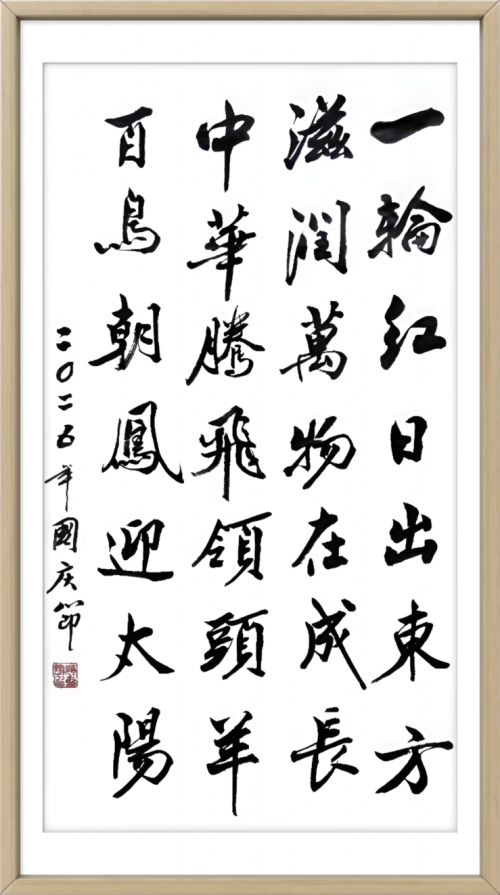 一輪紅日出東方
滋潤萬物在成長
中華騰飛領頭羊
百鳥朝鳳迎太陽
二〇二五年國庆節